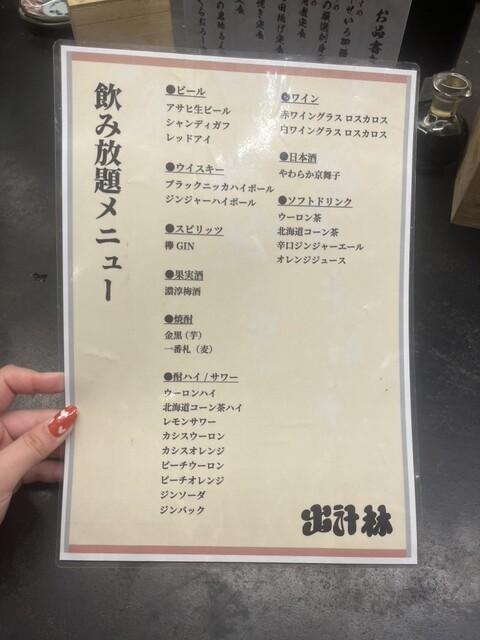 飲み放題メニュー
●ビール
アサヒ生ビール
シャンディガフ
レッドアイ
●ウイスキー
ブラックニッカハイボール
ジンジャーハイボール
●スピリッツ
欅 GIN
●果実酒
濃淳梅酒
●焼酎
金黒(芋)
一番札（麦）
●酎ハイ / サワー
ウーロンハイ
北海道コーン茶ハイ
レモンサワー
カシスウーロン
カシスオレンジ
ピーチウーロン
ピーチオレンジ
ジンソーダ
ジンバック
●ワイン
赤ワイングラス ロスカロス
白ワイングラス ロスカロス
●日本酒
やわらか京舞子
●ソフトドリンク
ウーロン茶
北海道コーン茶
辛口ジンジャーエール
オレンジジュース
出汁林
お品書き